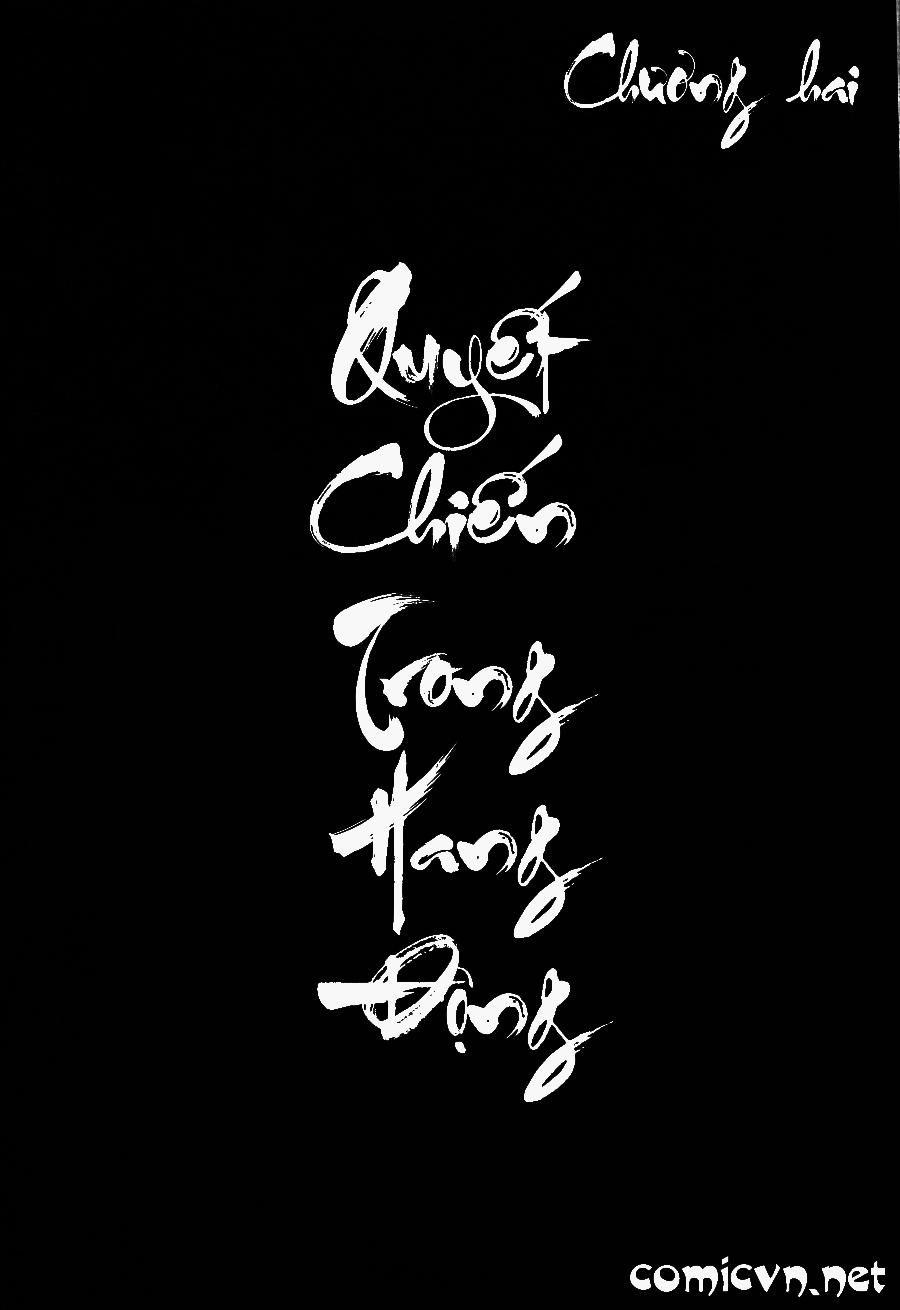 Chương hai
Quyết
Chiến
Trong
Hang
Động
comicvn.net